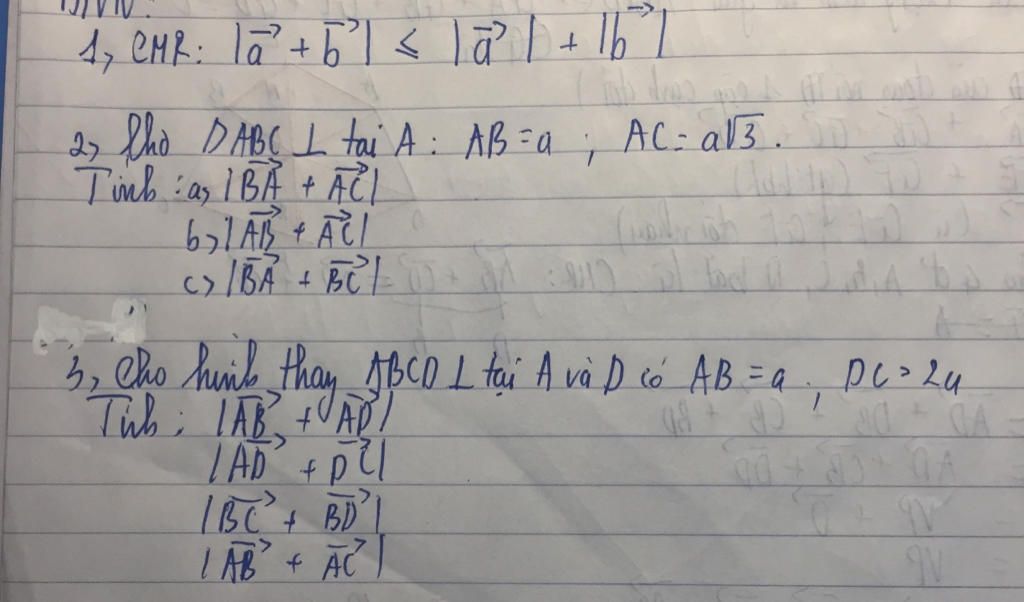 1, CMR: |a⃗ + b⃗| ≤ |a⃗| + |b⃗|
2, Cho ΔABC ⊥ tại A: AB = a ; AC = a√3.
Tính: a, |BA⃗ + AC⃗|
b, |AB⃗ + AC⃗|
c, |BA⃗ + BC⃗|
3, Cho hình thang ABCD ⊥ tại A và D có AB = a, DC = 2a
Tính: |AB⃗ + AD⃗|
|AD⃗ + DC⃗|
|BC⃗ + BD⃗|
|AB⃗ + AC⃗|